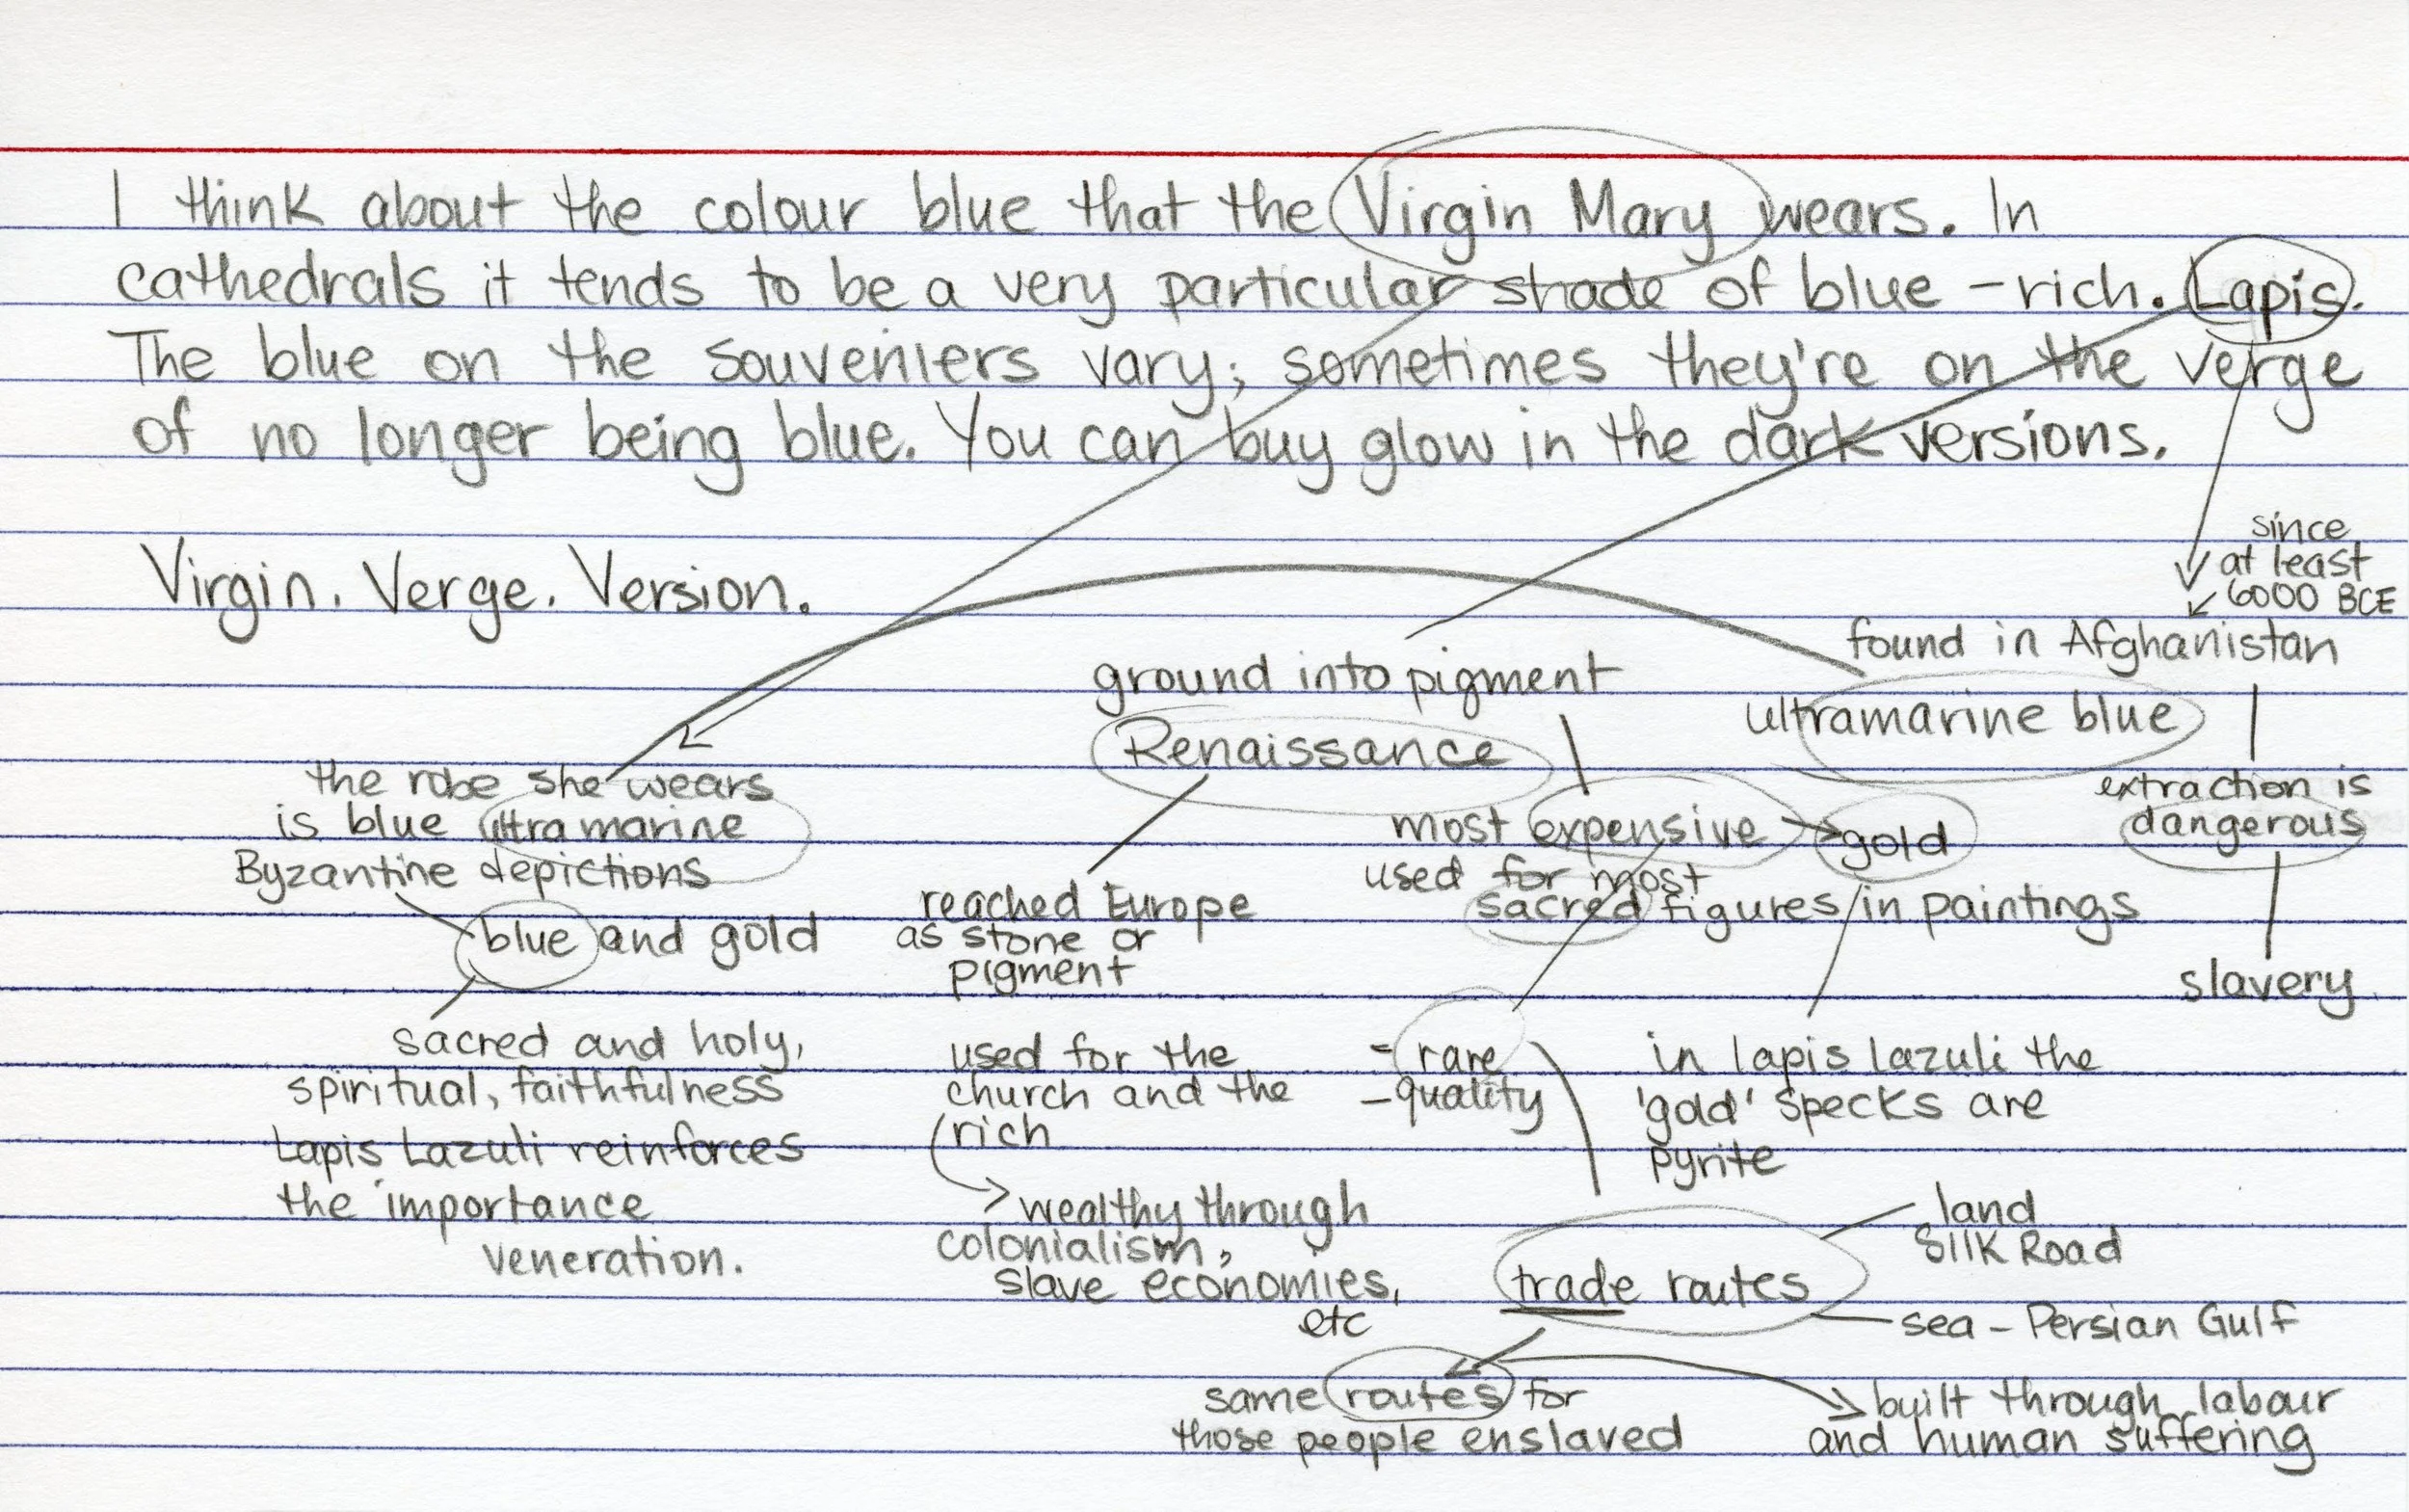 I think about the colour blue that the Virgin Mary wears. In
cathedrals it tends to be a very particular shade of blue – rich. Lapis.
The blue on the souveniers vary; sometimes they're on the verge
of no longer being blue. You can buy glow in the dark versions.
Virgin. Verge. Version.
since
at least
6000 BCE
found in Afghanistan
ultramarine blue
extraction is
dangerous
slavery
ground into pigment
Renaissance
most expensive → gold
used for most
sacred figures in paintings
the robe she wears
is blue ultramarine
Byzantine depictions
blue and gold
sacred and holy,
spiritual, faithfulness
Lapis Lazuli reinforces
the importance
veneration.
reached Europe
as stone or
pigment
used for the
church and the
rich
→ wealthy through
colonialism,
slave economies,
etc
- rare
- quality
in lapis lazuli the
'gold' specks are
pyrite
trade routes
land
Silk Road
sea – Persian Gulf
same routes for
those people enslaved
built through labour
and human suffering